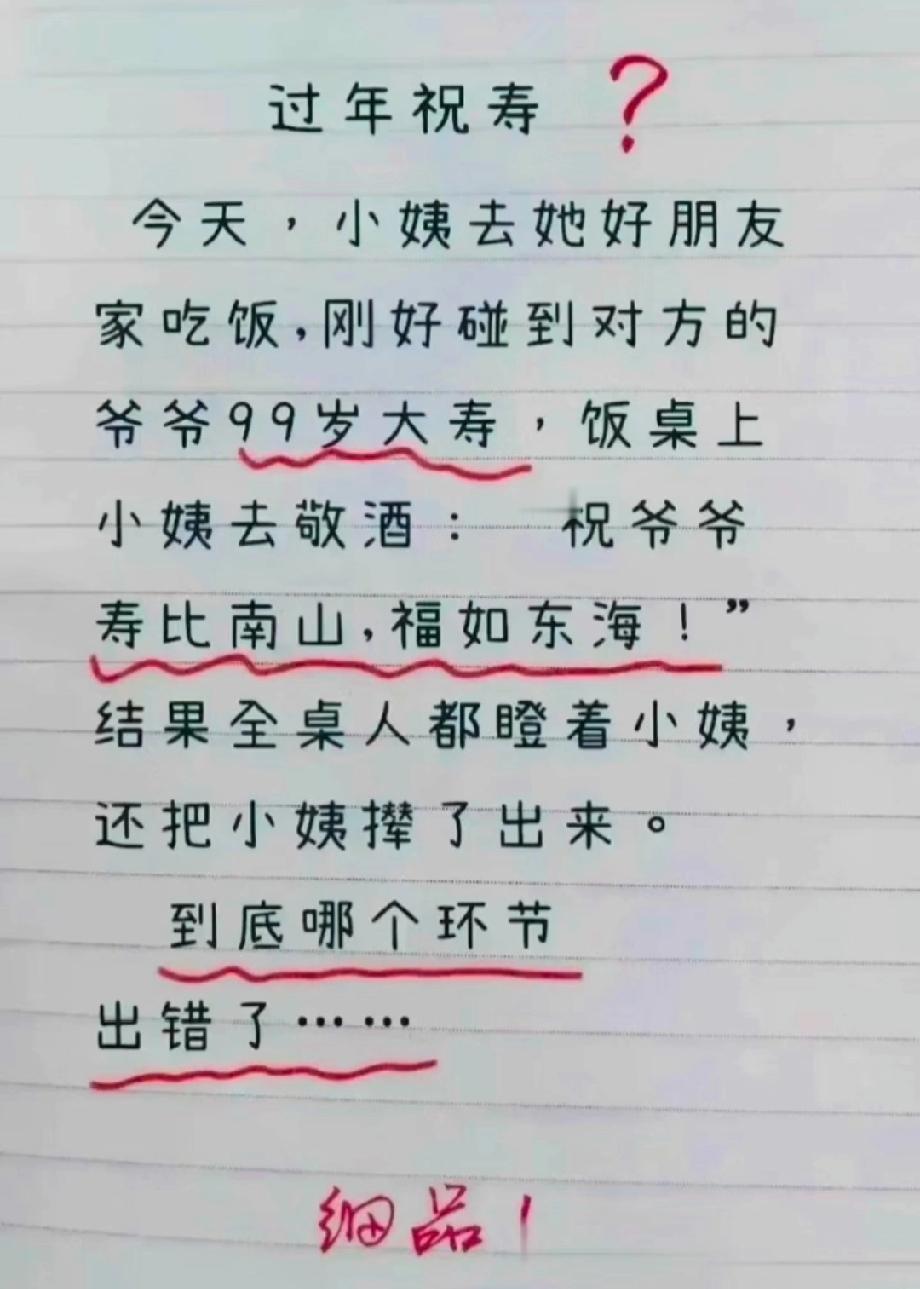 过年祝寿？
今天，小姨去她好朋友
家吃饭，刚好碰到对方的
爷爷99岁大寿，饭桌上
小姨去敬酒：祝爷爷
寿比南山，福如东海！”
结果全桌人都瞪着小姨，
还把小姨撵了出来。
到底哪个环节
出错了……
细品！